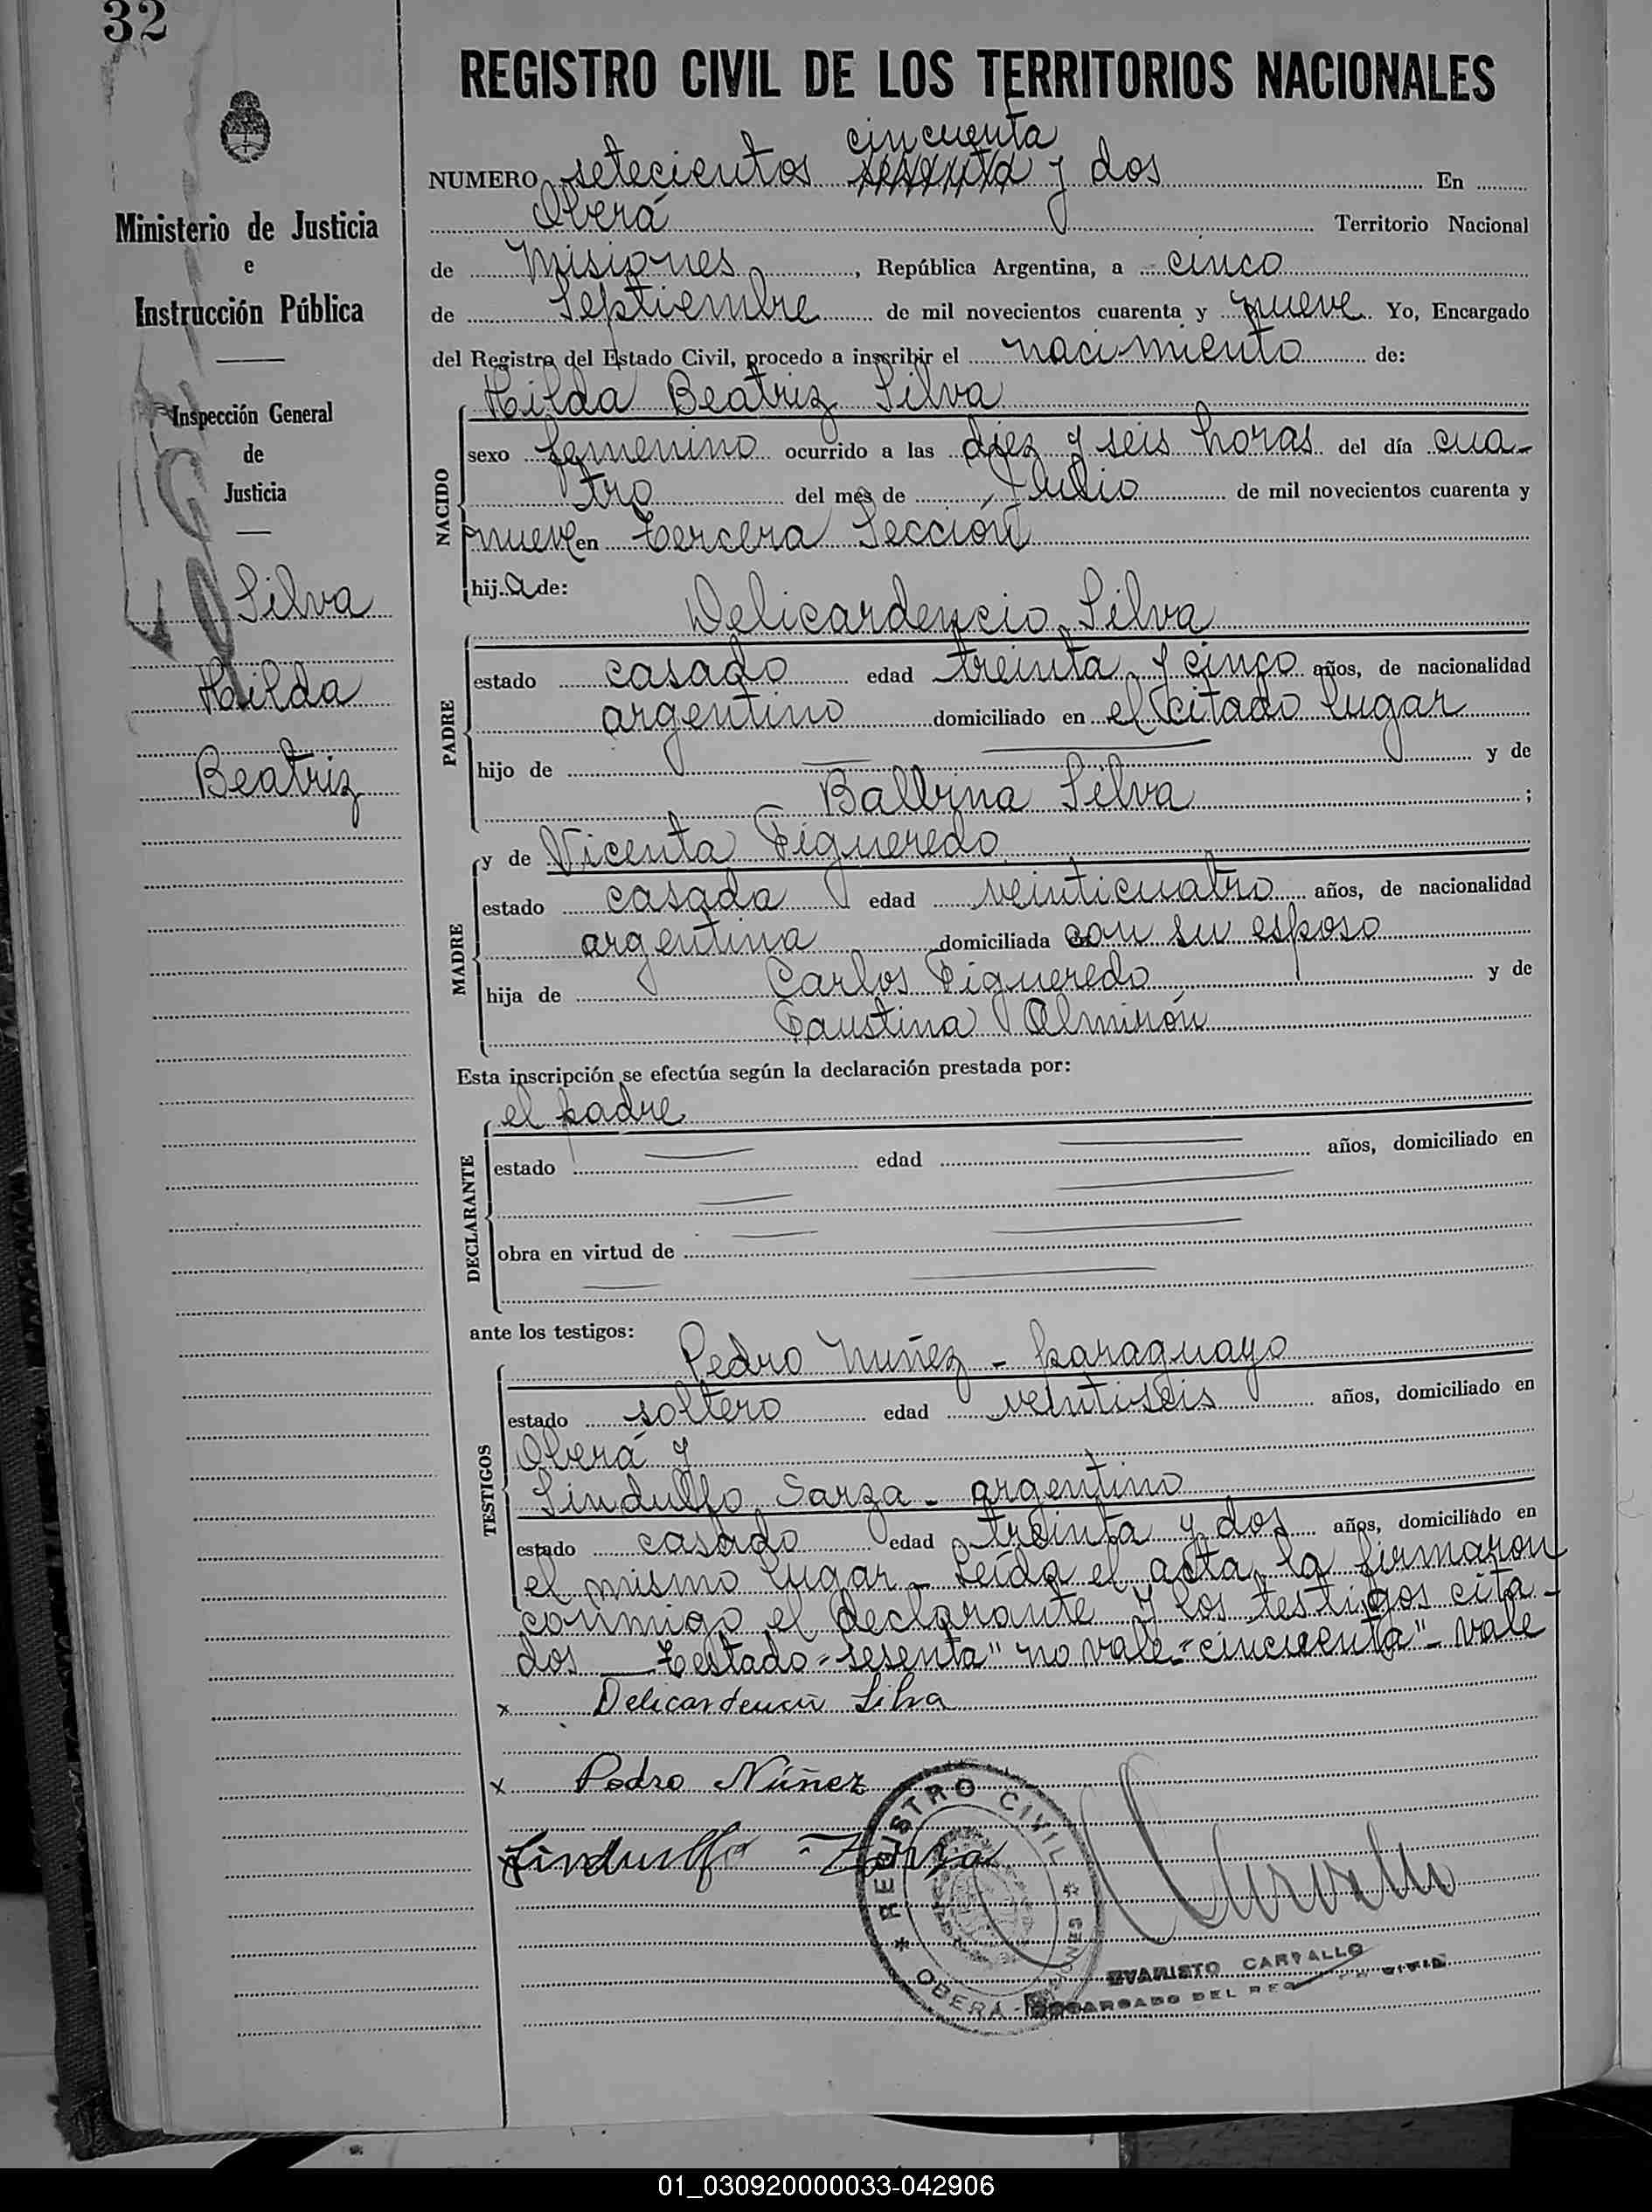 32
REGISTRO CIVIL DE LOS TERRITORIOS NACIONALES
Ministerio de Justicia
e
Instrucción Pública
Inspección General
de
Justicia
Silva
Hilda
Beatriz
cincuenta
NUMERO setecientos sesenta y dos En
Oberá Territorio Nacional
de Misiones, República Argentina, a cinco
de Septiembre de mil novecientos cuarenta y nueve Yo, Encargado
del Registro del Estado Civil, procedo a inscribir el nacimiento de:
NACIDO
Hilda Beatriz Silva
sexo femenino ocurrido a las diez y seis horas del día cua-
tro del mes de Julio de mil novecientos cuarenta y
nueve en tercera Sección
hij.a de:
PADRE
Delicardencio Silva
estado casado edad treinta y cinco años, de nacionalidad
argentino domiciliado en el citado lugar
hijo de y de
Balbina Silva ;
MADRE
y de Vicenta Figueredo
estado casada edad veinticuatro años, de nacionalidad
argentina domiciliada con su esposo
hija de Carlos Figueredo y de
Faustina Almirón
Esta inscripción se efectúa según la declaración prestada por:
DECLARANTE
el padre
estado edad años, domiciliado en
obra en virtud de
ante los testigos:
TESTIGOS
Pedro Nuñez - paraguayo
estado soltero edad veintiseis años, domiciliado en
Oberá y
Sindulfo Sarza - argentino
estado casado edad treinta y dos años, domiciliado en
el mismo lugar - Leída el acta, la firmaron
conmigo el declarante y los testigos cita-
dos — Testado "sesenta" no vale - "cincuenta" - vale
x Delicardencio Silva
x Pedro Núñez
Sindulfo Zarza
REGISTRO CIVIL
OBERÁ - MISIONES
EVARISTO CARVALLO
ENCARGADO DEL REG CIVIL
01_030920000033-042906